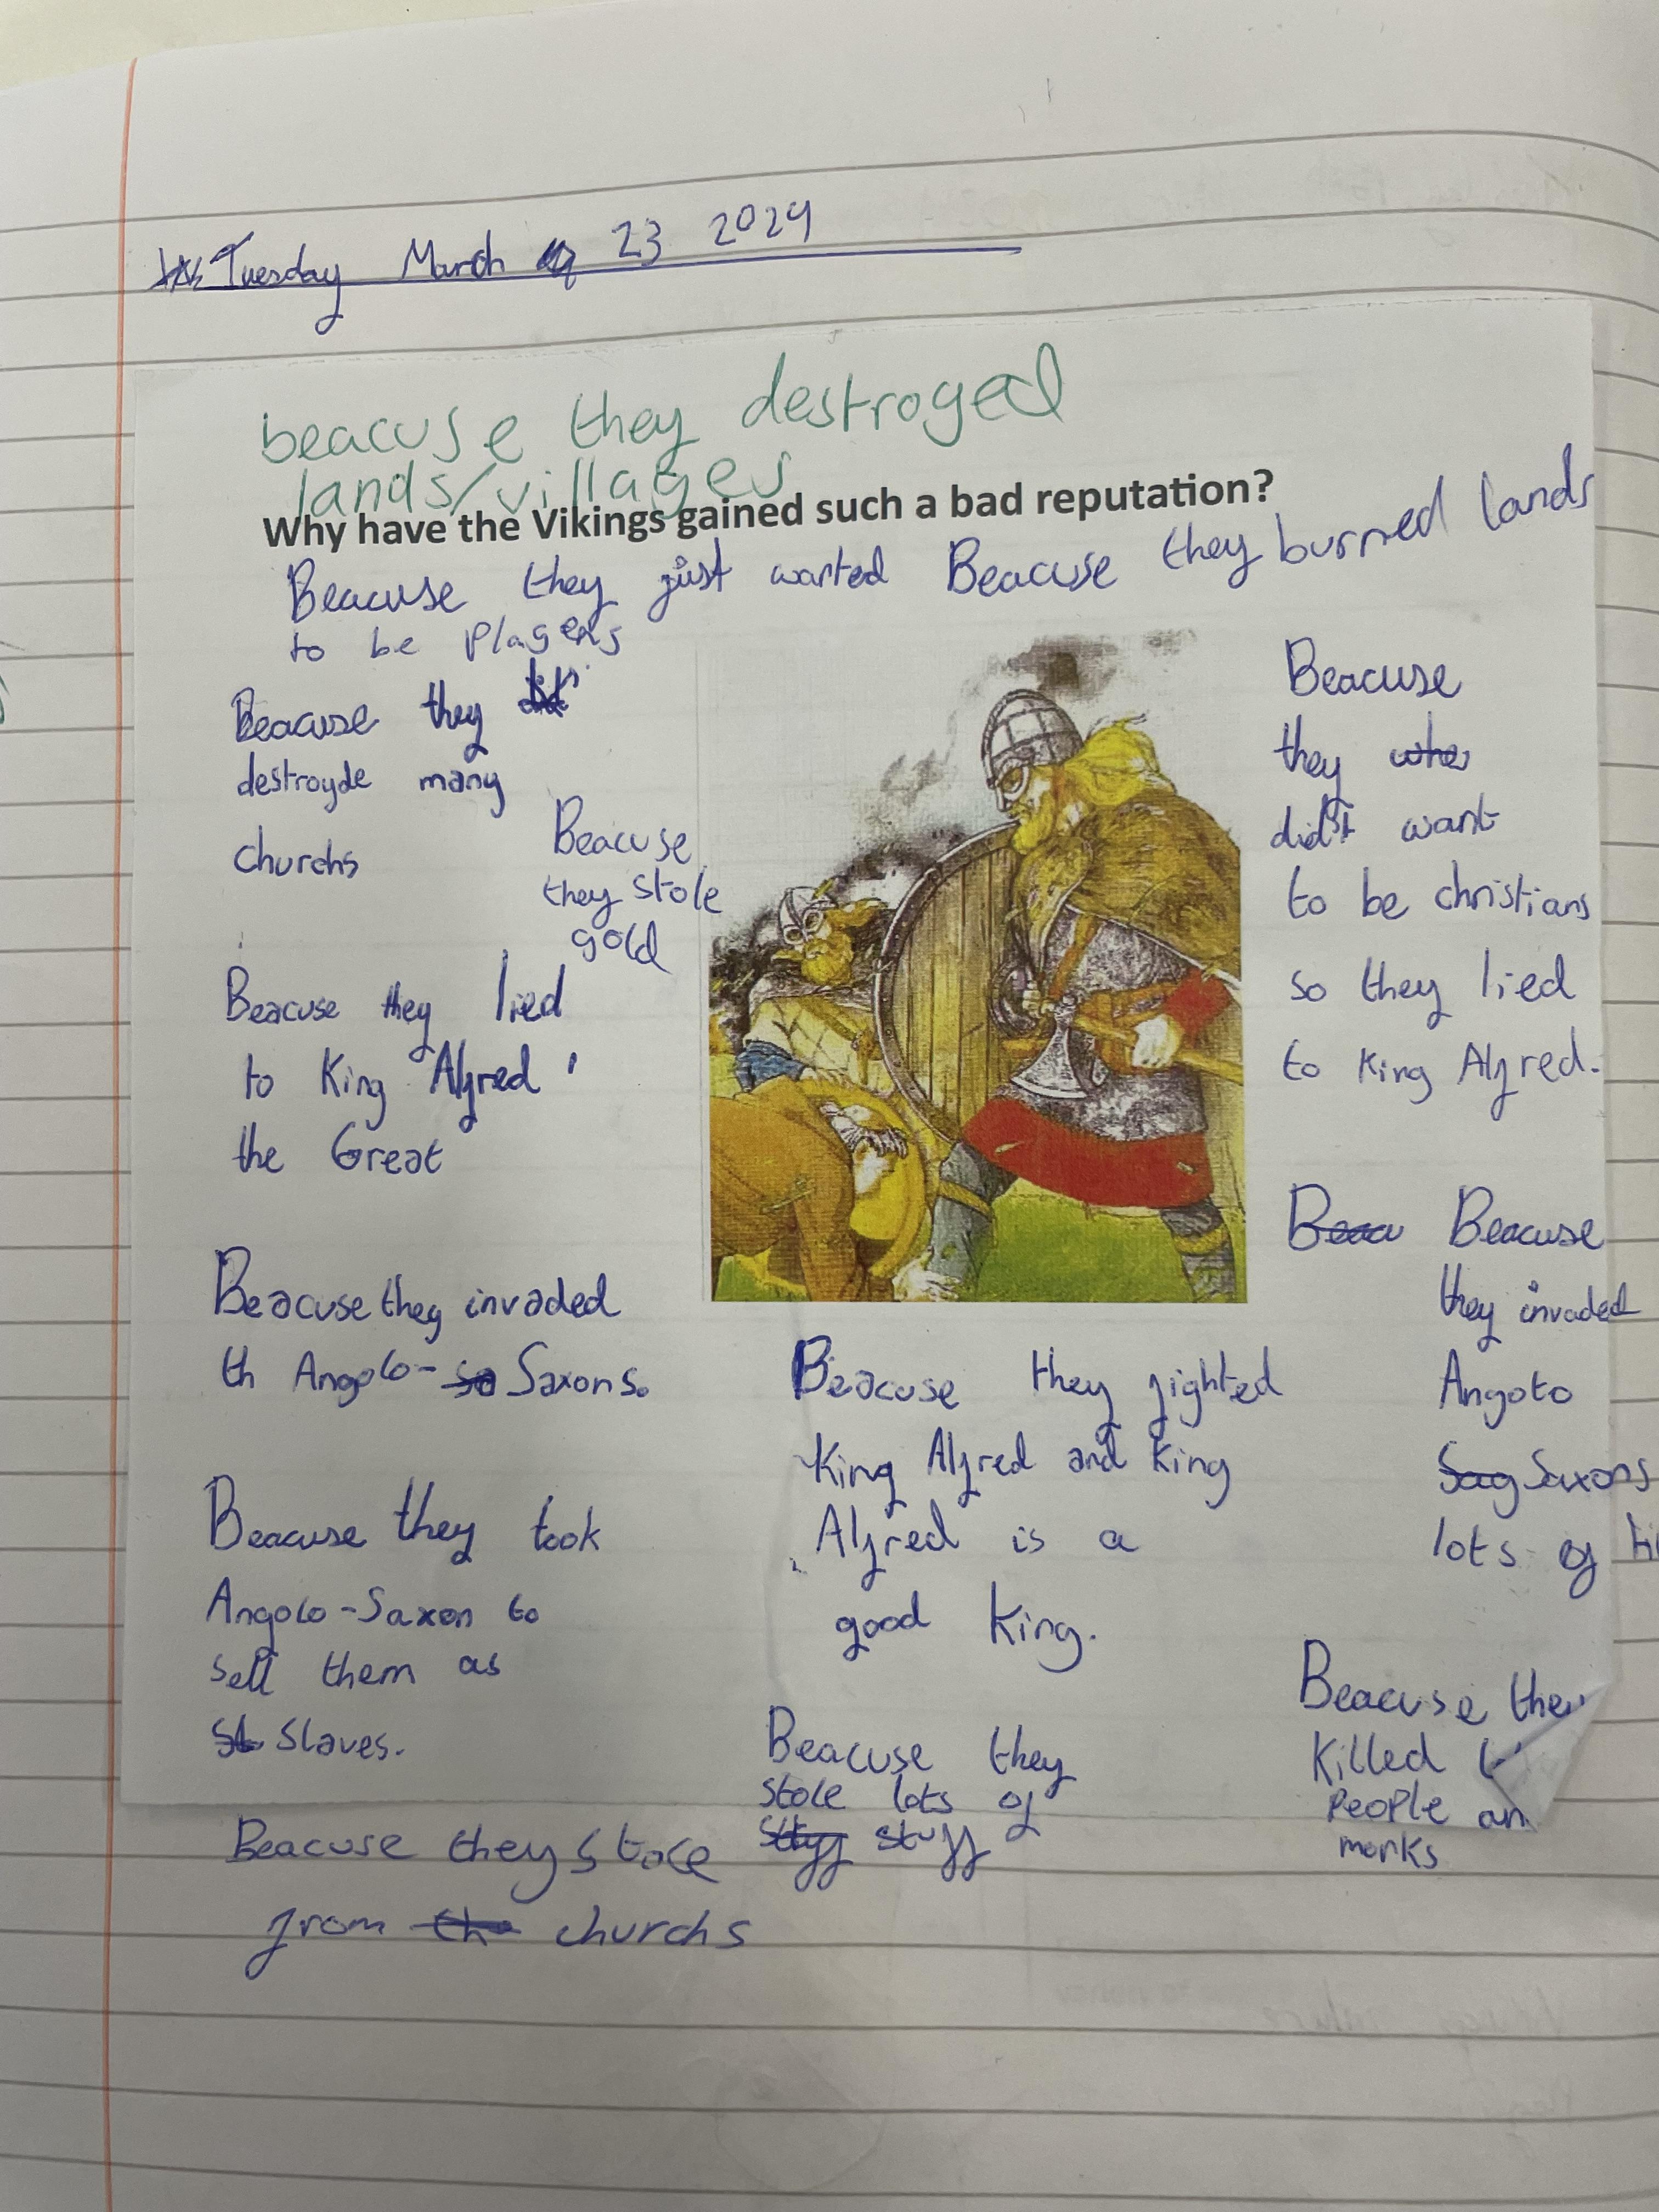 Tuesday March 23 2024
beacuse they destroyed
lands/villages
Why have the Vikings gained such a bad reputation?
Beacuse they just wanted
to be
Beacuse they burned lands
Beacuse they
destroyde many
churchs
Beacuse
they stole
gold
Beacuse they lied
to King Alfred
the Great
Beacuse they invaded
th Angolo-Saxons.
Beacuse they took
Angolo-Saxon to
sell them as
slaves.
Beacuse they stole
from churchs
Beacuse they fighted
King Alfred and King
Alfred is a
good King.
Beacuse they
stole lots of
stuff
Beacuse
they
did't want
to be christians
so they lied
to King Alfred.
Beacuse
they invaded
Angolo
Saxons
lots of
Beacuse
killed
people
monks